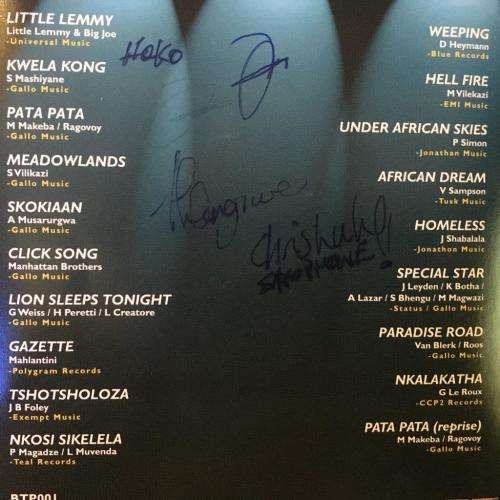 LITTLE LEMMY
Little Lemmy & Big Joe
-Universal Music
KWELA KONG
S Mashiyane
-Gallo Music
PATA PATA
M Makeba / Ragovoy
-Gallo Music
MEADOWLANDS
S Vilikazi
-Gallo Music
SKOKIAAN
A Musarurgwa
-Gallo Music
CLICK SONG
Manhattan Brothers
-Gallo Music
LION SLEEPS TONIGHT
G Weiss / H Peretti / L Creatore
-Gallo Music
GAZETTE
Mahlantini
-Polygram Records
TSHOTSHOLOZA
J B Foley
-Exempt Music
NKOSI SIKELELA
P Magadze / L Muvenda
-Teal Records
BTP001
WEEPING
D Heymann
-Blue Records
HELL FIRE
M Vilekazi
-EMI Music
UNDER AFRICAN SKIES
P Simon
-Jonathan Music
AFRICAN DREAM
V Sampson
-Tusk Music
HOMELESS
J Shabalala
-Jonathon Music
SPECIAL STAR
J Leyden / K Botha /
A Lazar / S Bhengu / M Magwazi
-Status / Gallo Music
PARADISE ROAD
Van Blerk / Roos
-Gallo Music
NKALAKATHA
G Le Roux
-CCP2 Records
PATA PATA (reprise)
M Makeba / Ragovoy
-Gallo Music
HOKO
SAXOPHONE!